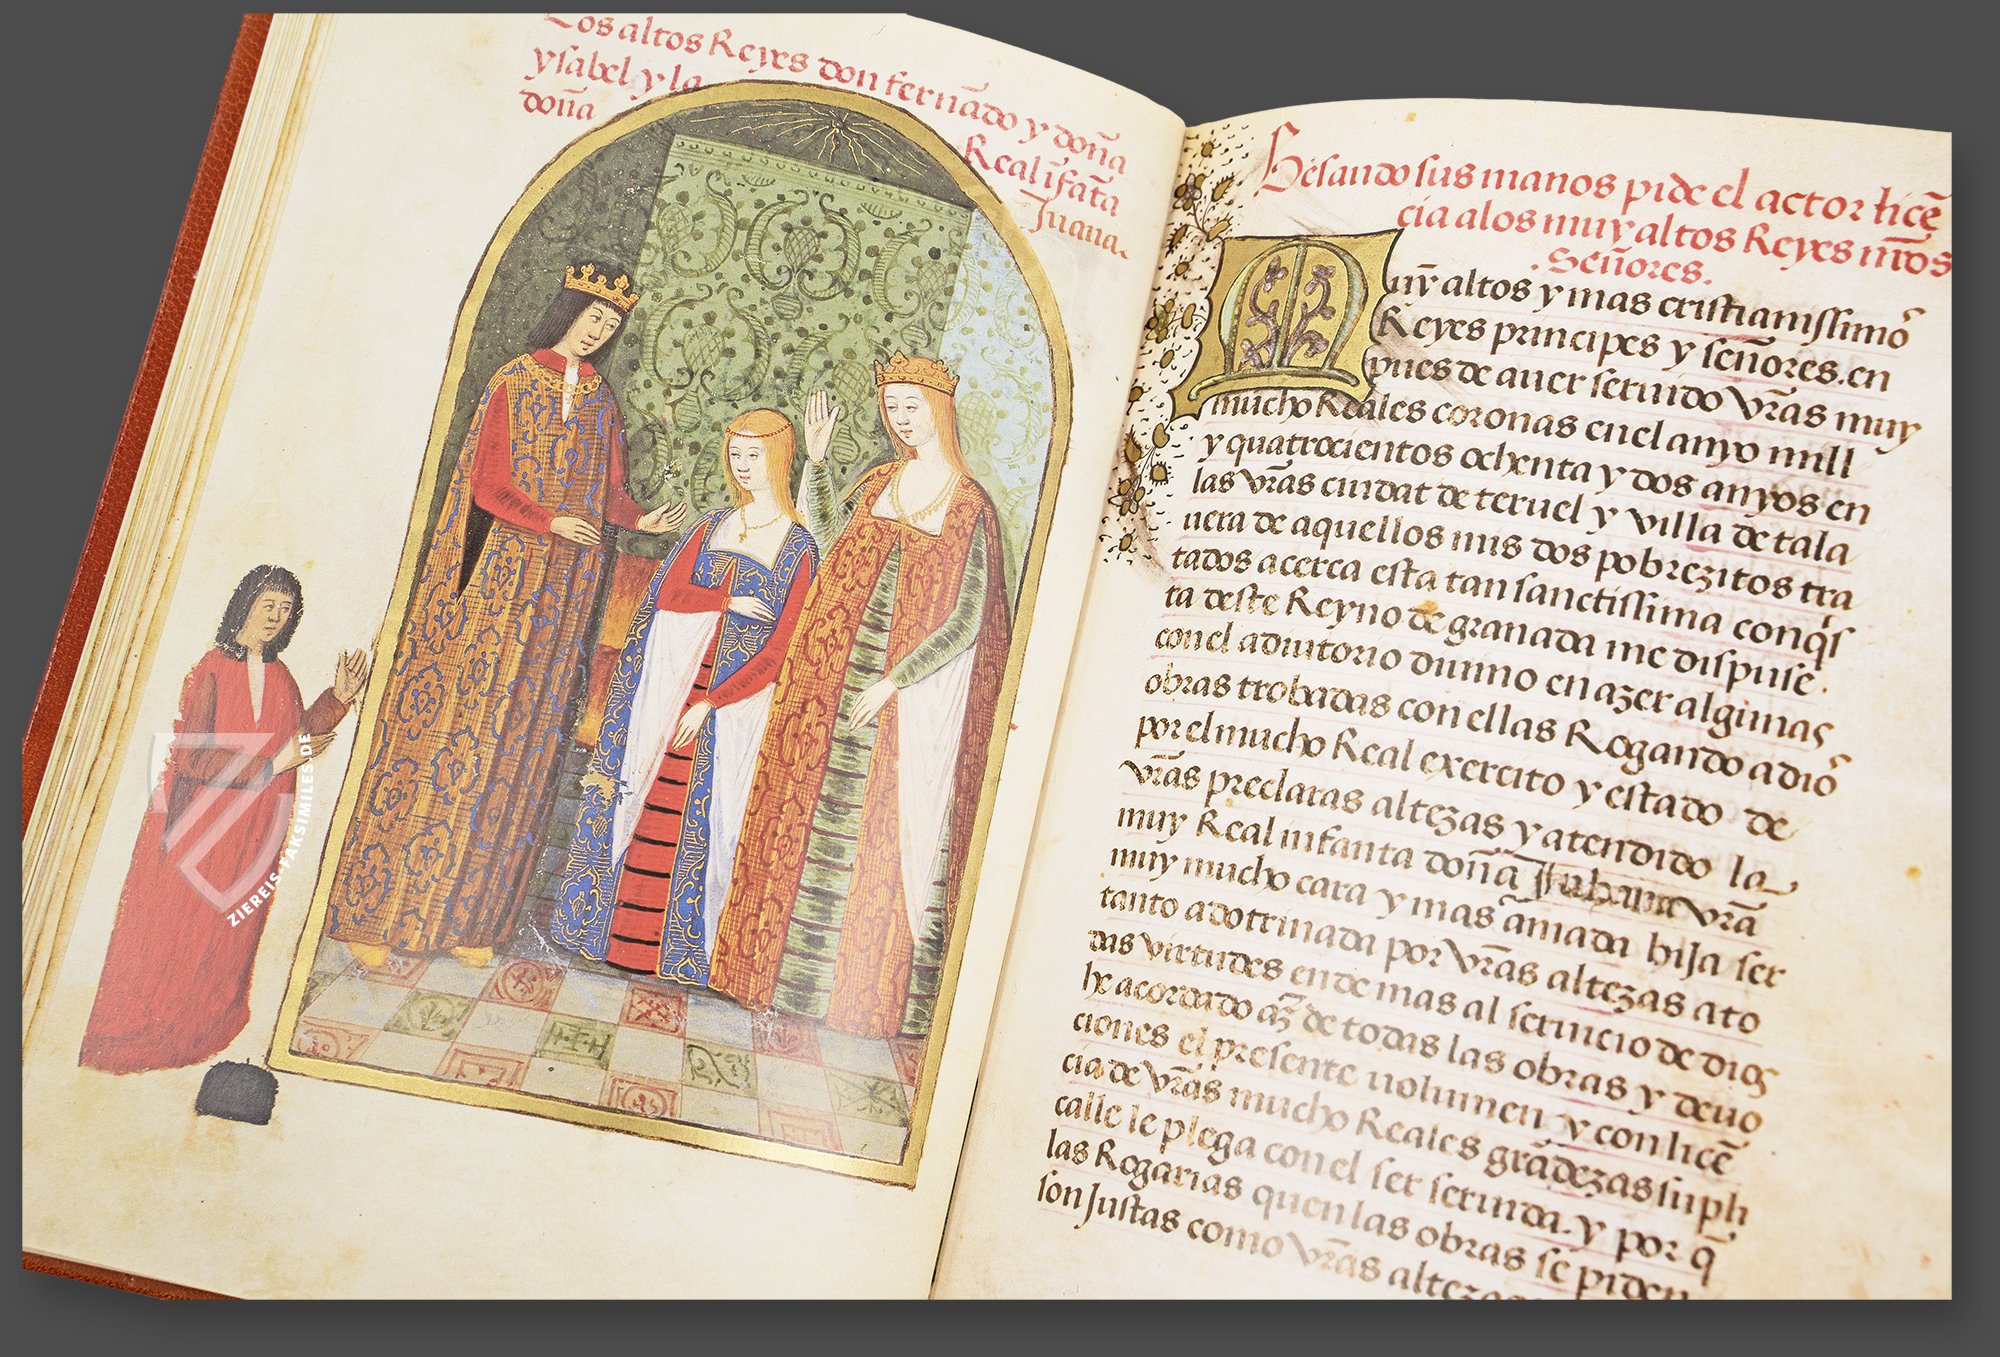 Los altos Reyes don fernãdo y doña
ysabel y la Real ĩfãta
doña Juana.
Besando sus manos pide el actor licẽ
cia a los muy altos Reyes nr̃os
. Señores.
Muy altos y mas cristianissimos
Reyes principes y señores. en
pues de auer seruido vr̃as muy
mucho Reales coronas en el anyo mill
y quatrocientos ochenta y dos anyos en
las vr̃as ciudat de teruel y villa de tala
uera de aquellos mis dos pobrezitos tra
tados acerca esta tan sanctissima conq̃s
ta deste Reyno de granada me dispuse.
con el adiutorio diuino en azer algunas
obras trobadas con ellas Rogando a diõ
por el mucho Real exercito y estado de
vr̃as preclaras altezas y atendido la
muy Real infanta doña Juhana vr̃a
muy mucho cara y mas amada hija ser
tanto adotrinada por vr̃as altezas a to
das virtudes ende mas al seruicio de dios
he acordado az̃ de todas las obras y deuo
ciones el presente uolumen y con licẽ
cia de vr̃as mucho Reales grãdezas suph
calle le plega con el ser seruida. y por q̃
las Rogarias quen las obras se piden
son Justas como vr̃as altezas
ZIEREIS-FAKSIMILES.DE